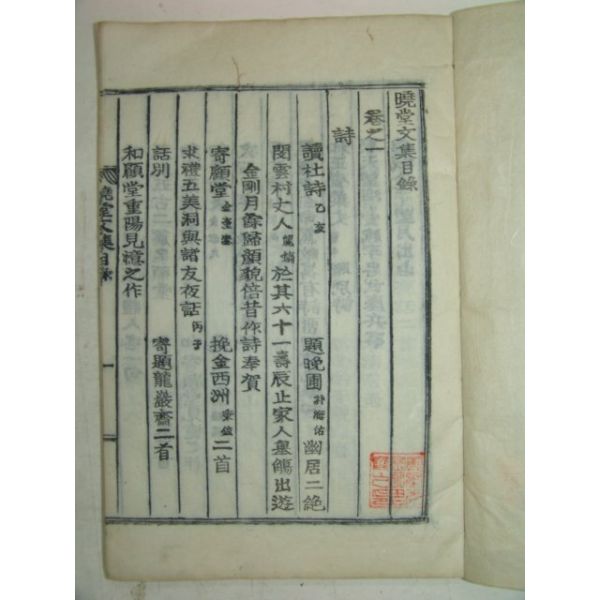 曉堂文集目錄
卷之一
詩
讀杜詩 乙亥 題晚圃 幽居二絶
閔雲村丈人 於其六十一壽辰止家人墓觴出遊
金剛月餘歸顔貌倍昔作詩奉賀
寄顧堂 挽金西洲 二首
求禮五美洞與諸友夜話 丙子
話別 寄題龍巖齋二首
和顧堂重陽見憶之作
曉堂文集目錄 一